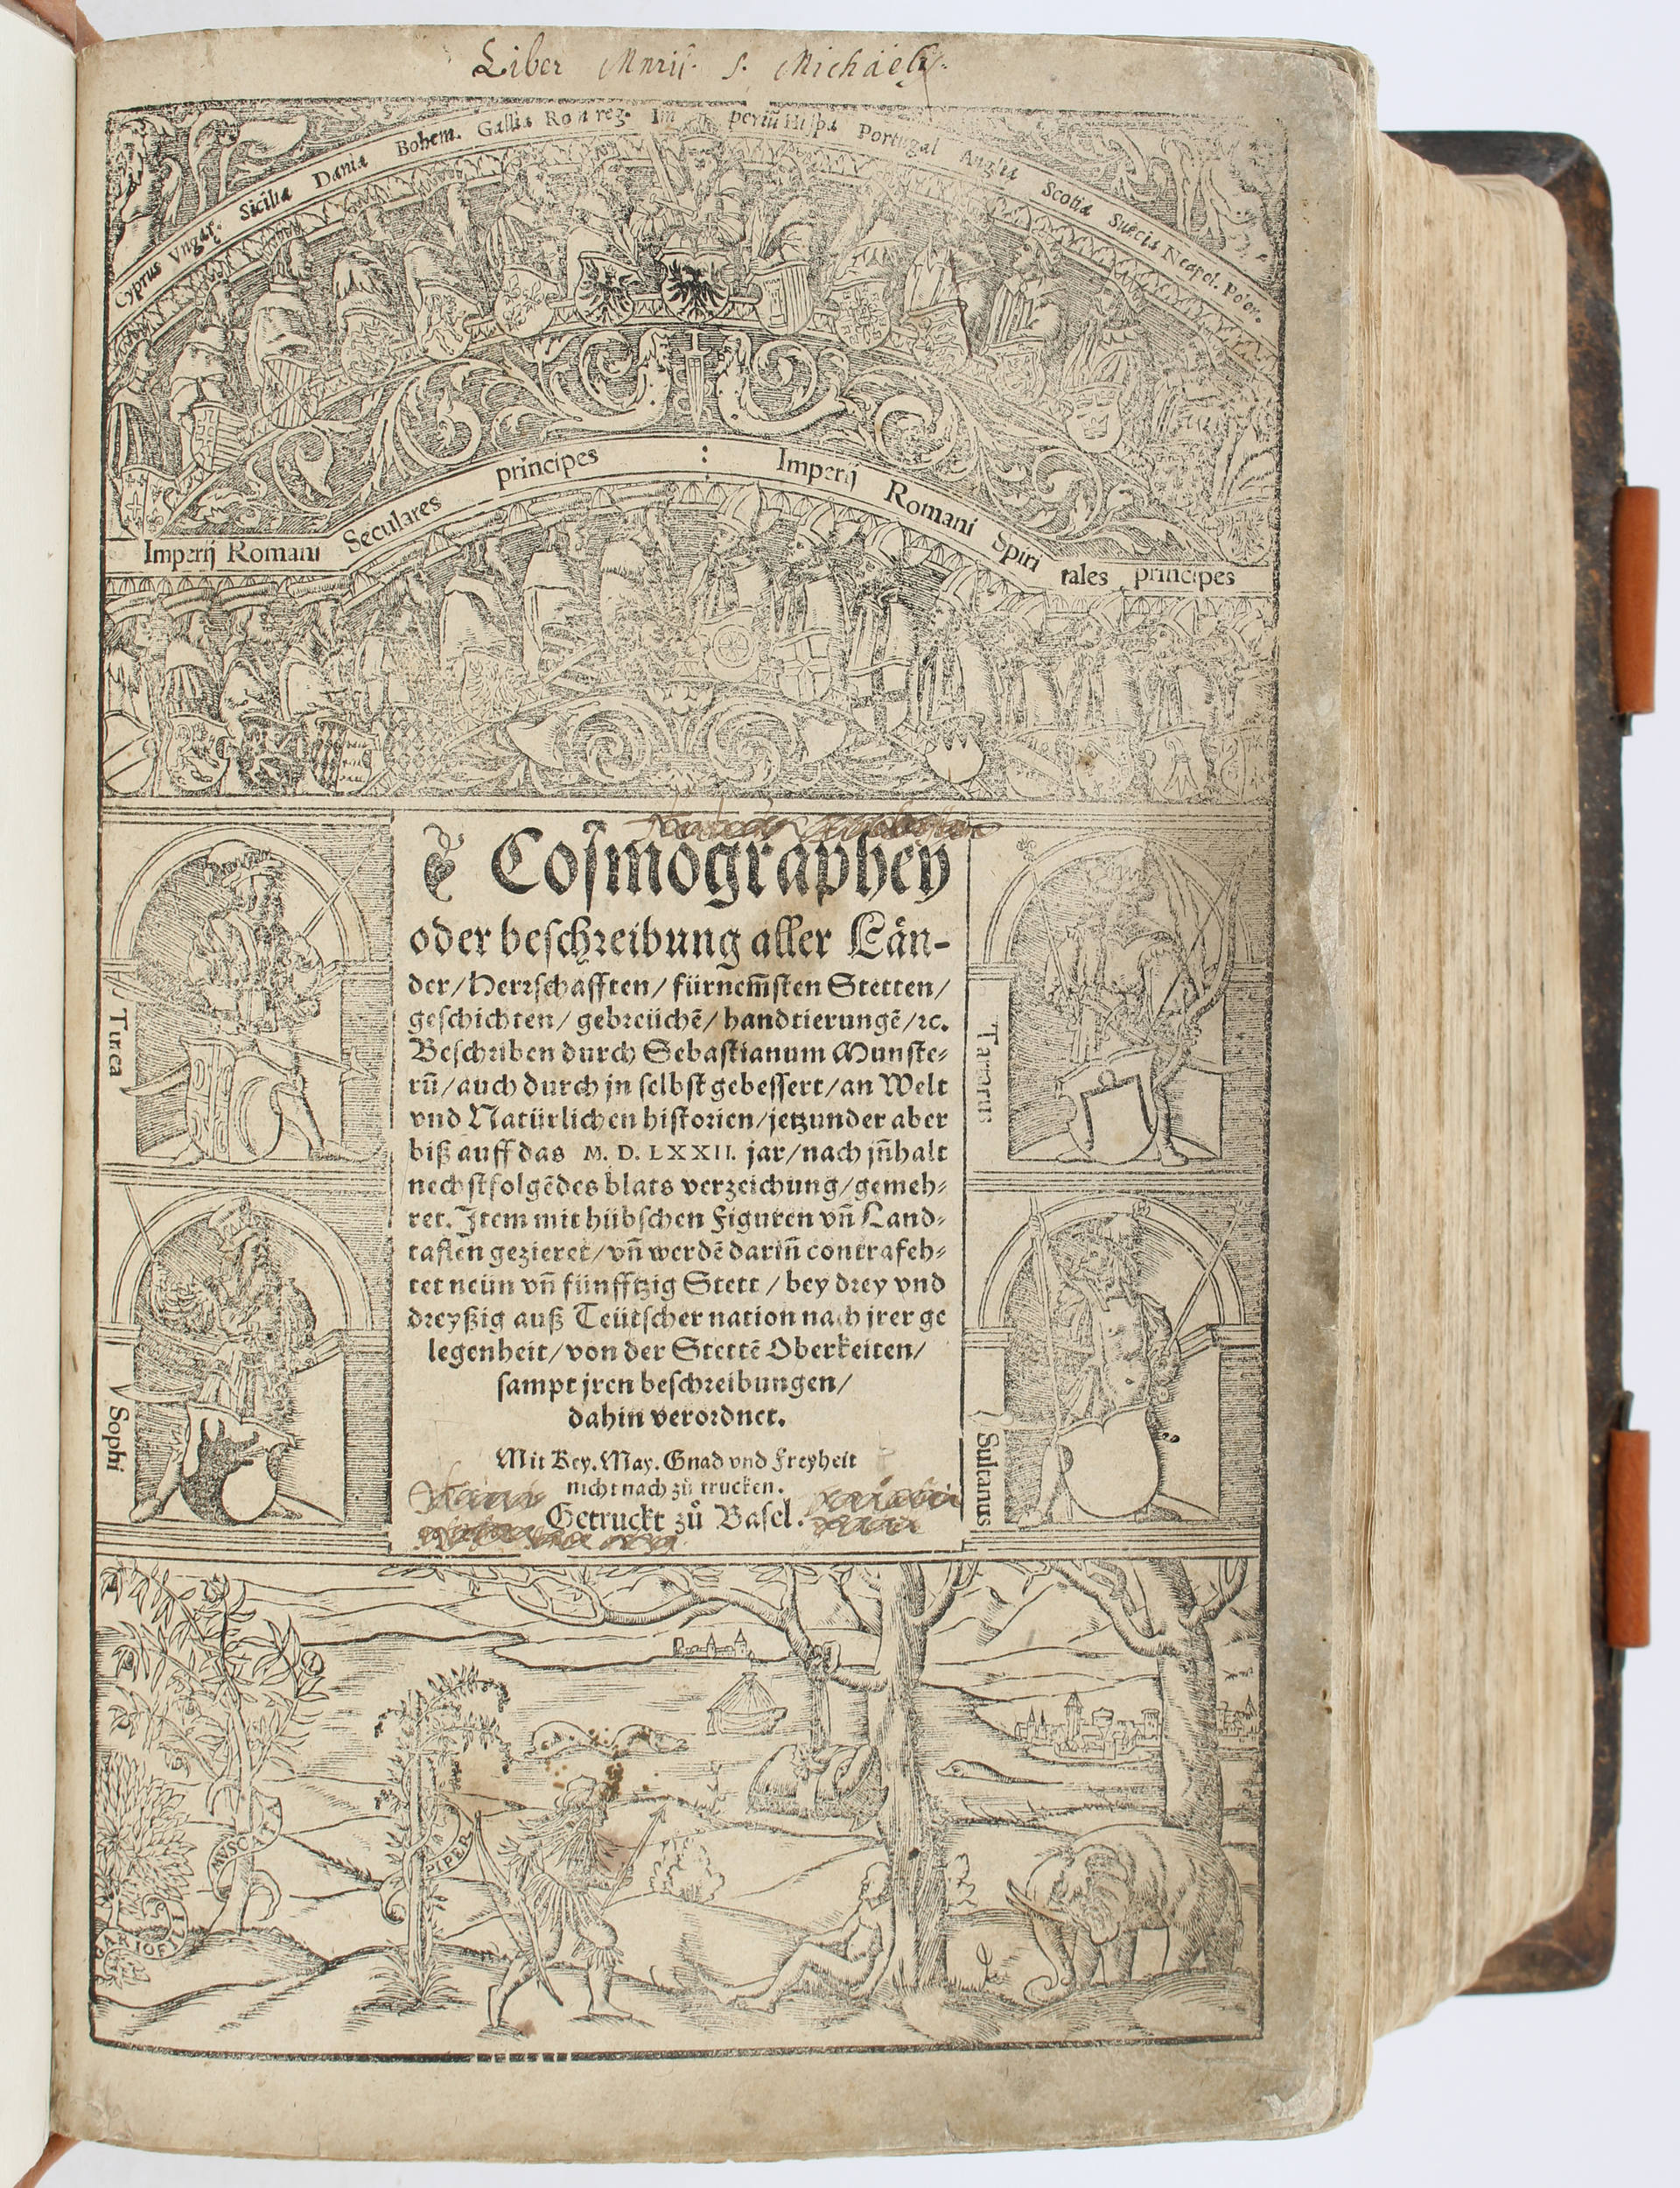 Liber Mnrij. S. Michaelis.
Cyprus Vngaȩ. Sicilia Dania Bohem. Gallia Ro reg. Im periū Hispa Portugal Anglia Scotia Suecia Neapol. Polon.
Imperij Romani Seculares principes : Imperij Romani Spiri tales principes
Cosmographey
oder beschreibung aller Län-
der/Herrschafften/fürnem̃sten Stetten/
geschichten/gebreüchẽ/handtierungẽ/ꝛc.
Beschriben durch Sebastianum Munste-
rũ/auch durch jn selbst gebessert/an Welt
vnd Natürlichen historien/jetzunder aber
biß auff das M. D. LXXII. jar/nach jñhalt
nechstfolgẽdes blats verzeichung/gemeh-
ret. Item mit hübschen Figuren vñ Land-
taflen gezieret/vñ werdẽ dariñ contrafeh-
tet neün vñ fünfftzig Stett/bey drey vnd
dreyßig auß Teütscher nation nach jrer ge
legenheit/von der Stettẽ Oberkeiten/
sampt jren beschreibungen/
dahin verordnet.
Mit Key. May. Gnad vnd Freyheit
nicht nach zů trucken.
Getruckt zů Basel.
Turca
Tartarus
Sophi
Sultanus
MVSCATA
PIPER
GARIOFILI